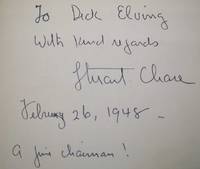 To Dick Elving
With kind regards
Stuart Chase
February 26, 1948 -
A fine chairman!